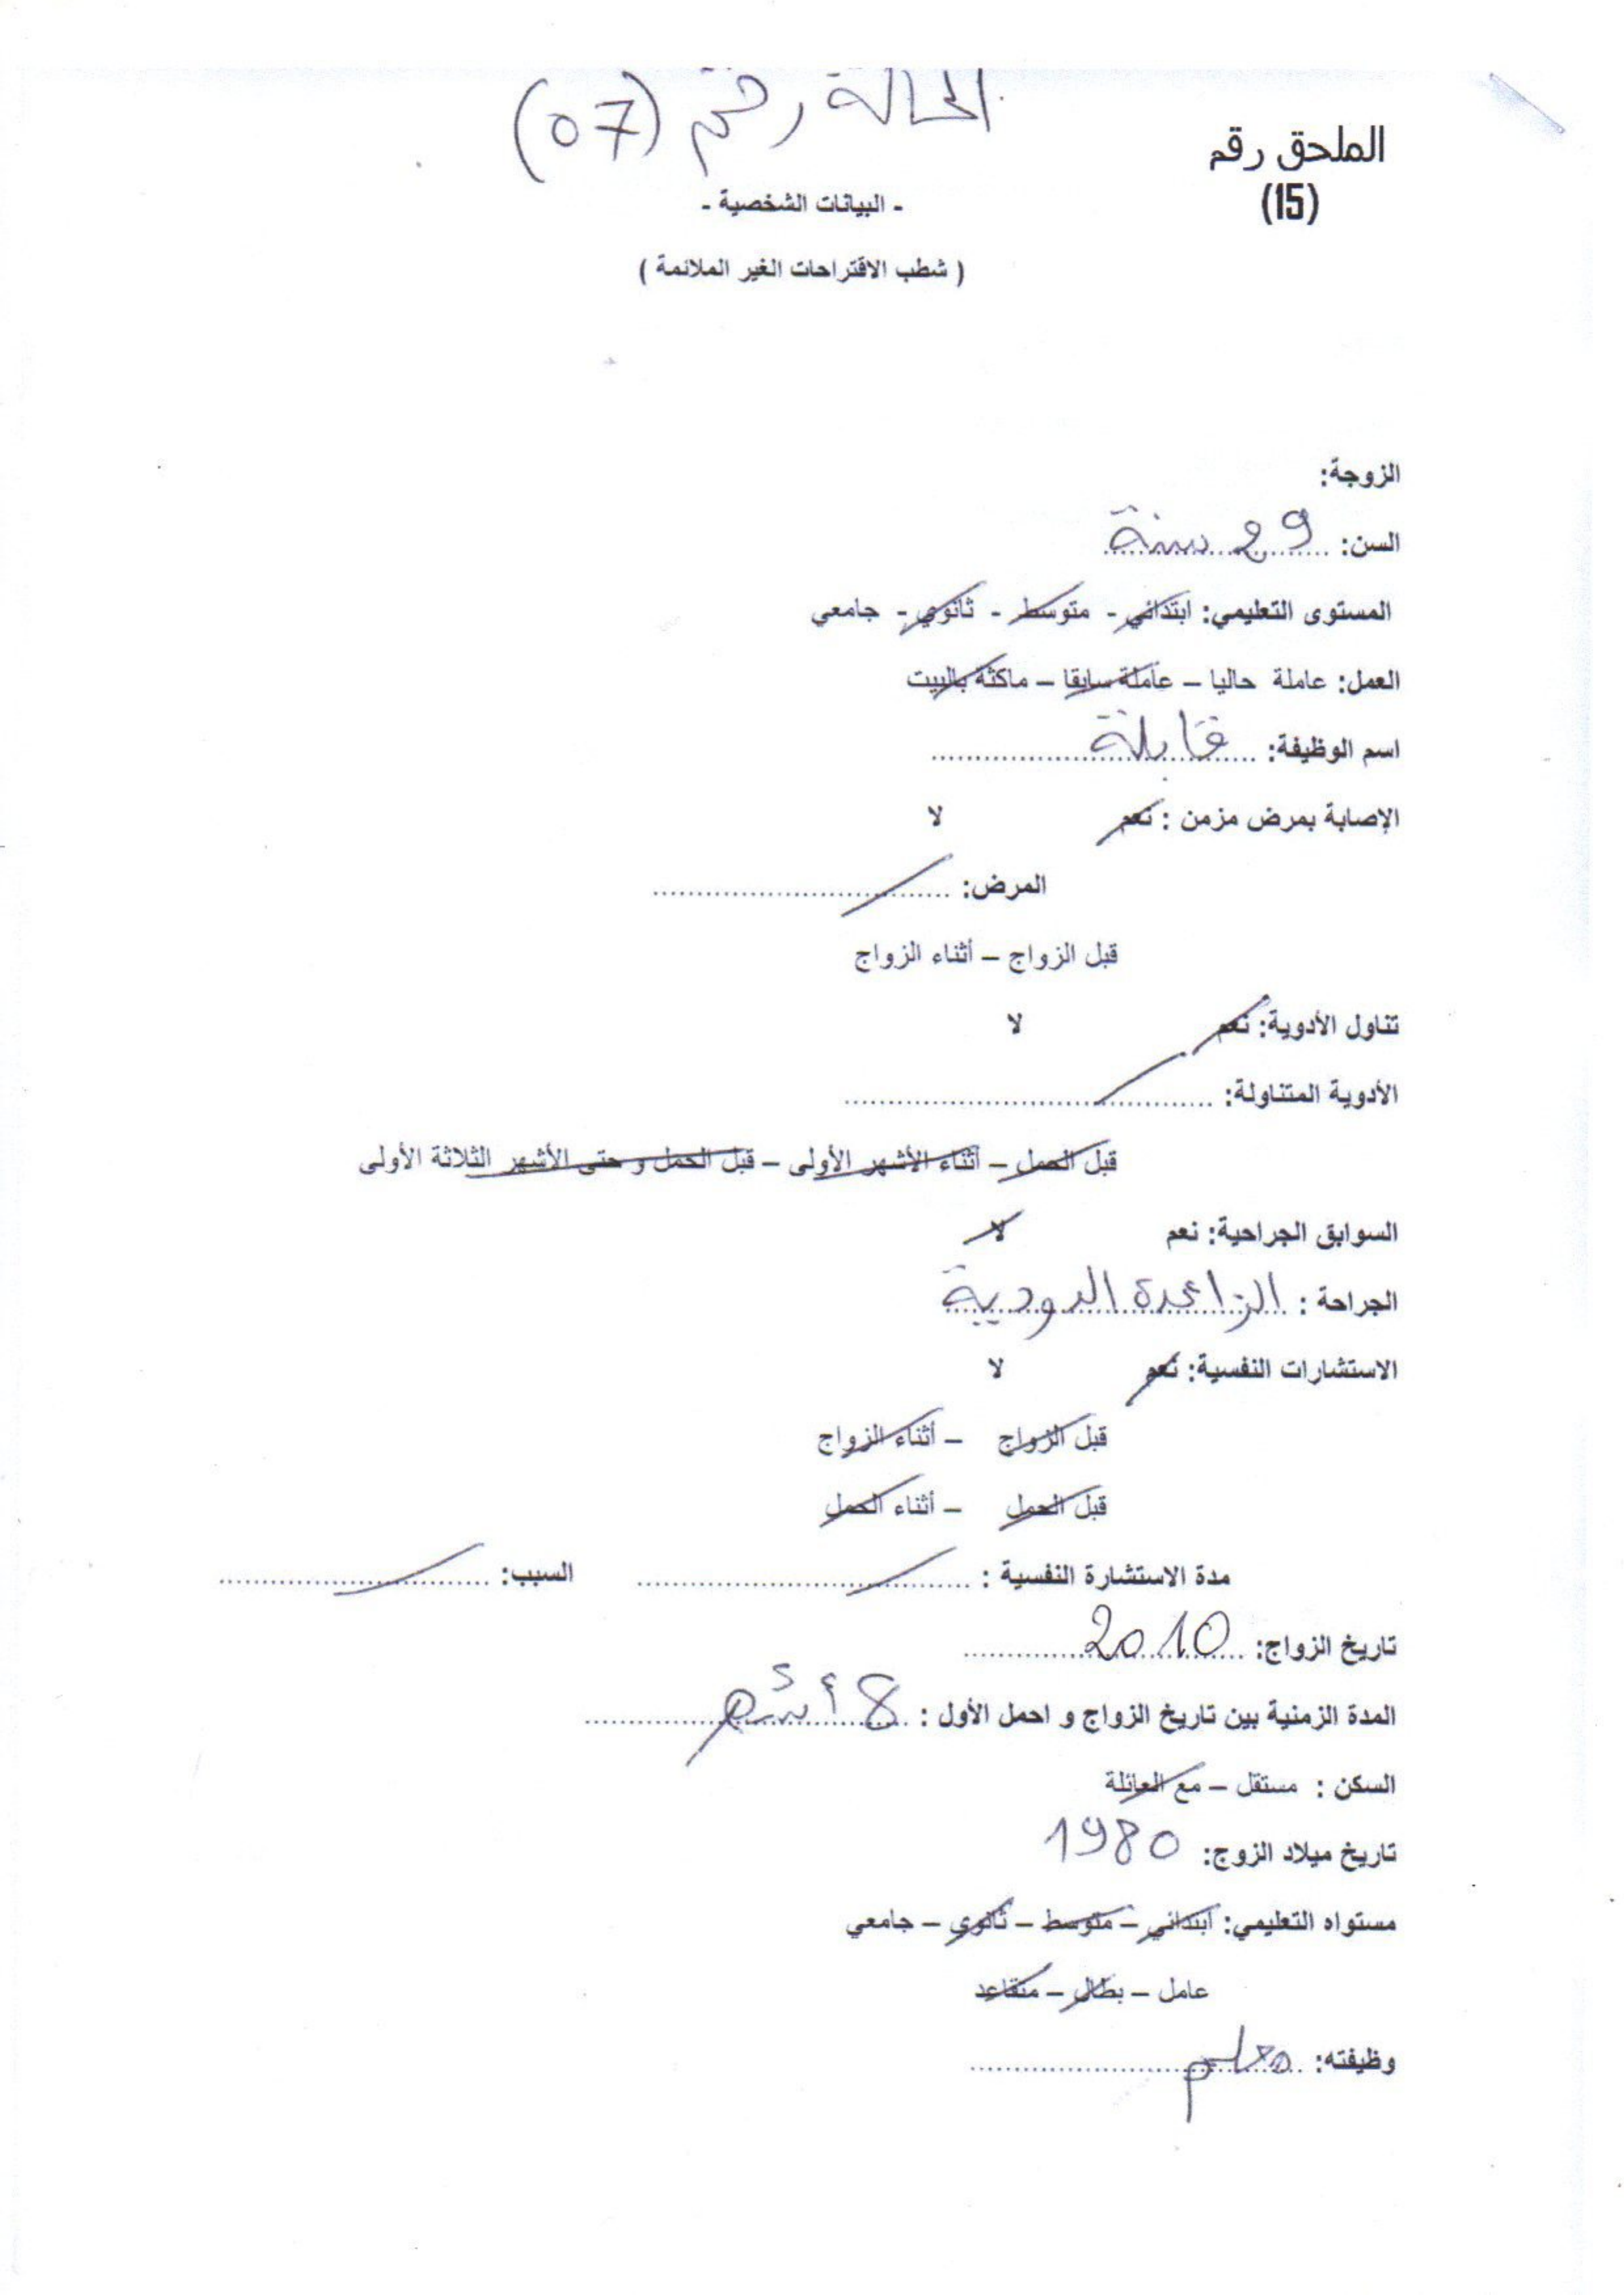 الحالة رقم (07)
الملحق رقم
(15)
- البيانات الشخصية -
( شطب الاقتراحات الغير الملائمة )
الزوجة:
السن: 29 سنة
المستوى التعليمي: ابتدائي - متوسط - ثانوي - جامعي
العمل: عاملة حاليا – عاملة سابقا – ماكثة بالبيت
اسم الوظيفة: قابلة
الإصابة بمرض مزمن : نعم لا
المرض:
قبل الزواج – أثناء الزواج
تناول الأدوية: نعم لا
الأدوية المتناولة:
قبل الحمل – أثناء الأشهر الأولى – قبل الحمل و حتى الأشهر الثلاثة الأولى
السوابق الجراحية: نعم لا
الجراحة : الزاعدة الدودية
الاستشارات النفسية: نعم لا
قبل الزواج – أثناء الزواج
قبل الحمل – أثناء الحمل
مدة الاستشارة النفسية : السبب:
تاريخ الزواج: 2010
المدة الزمنية بين تاريخ الزواج و احمل الأول : 8 أشهر
السكن : مستقل – مع العائلة
تاريخ ميلاد الزوج: 1980
مستواه التعليمي: ابتدائي – متوسط – ثانوي – جامعي
عامل – بطال – متقاعد
وظيفته: معلم